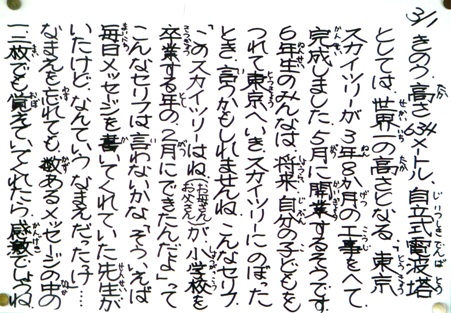 3/1
きのう、高さ634メートル、自立式電波塔
としては、世界一の高さとなる、「東京
スカイツリー」が3年8か月の工事をへて、
完成しました。5月に開業するそうです。
6年生のみんなは、将来、自分の子どもを
つれて東京へいき、スカイツリーにのぼった
とき、言うかもしれませんね。こんなセリフ。
「このスカイツリーはね、お母さん お父さんが小学校を
卒業する年の、2月にできたんだよ」って。
こんなセリフは言わないかな。「そういえば
毎日メッセージを書いてくれていた先生が
いたけど、なんていうなまえだったっけ…」
なまえを忘れても、数あるメッセージの中の
一、二枚でも覚えていてくれたら、感激でしょうね。